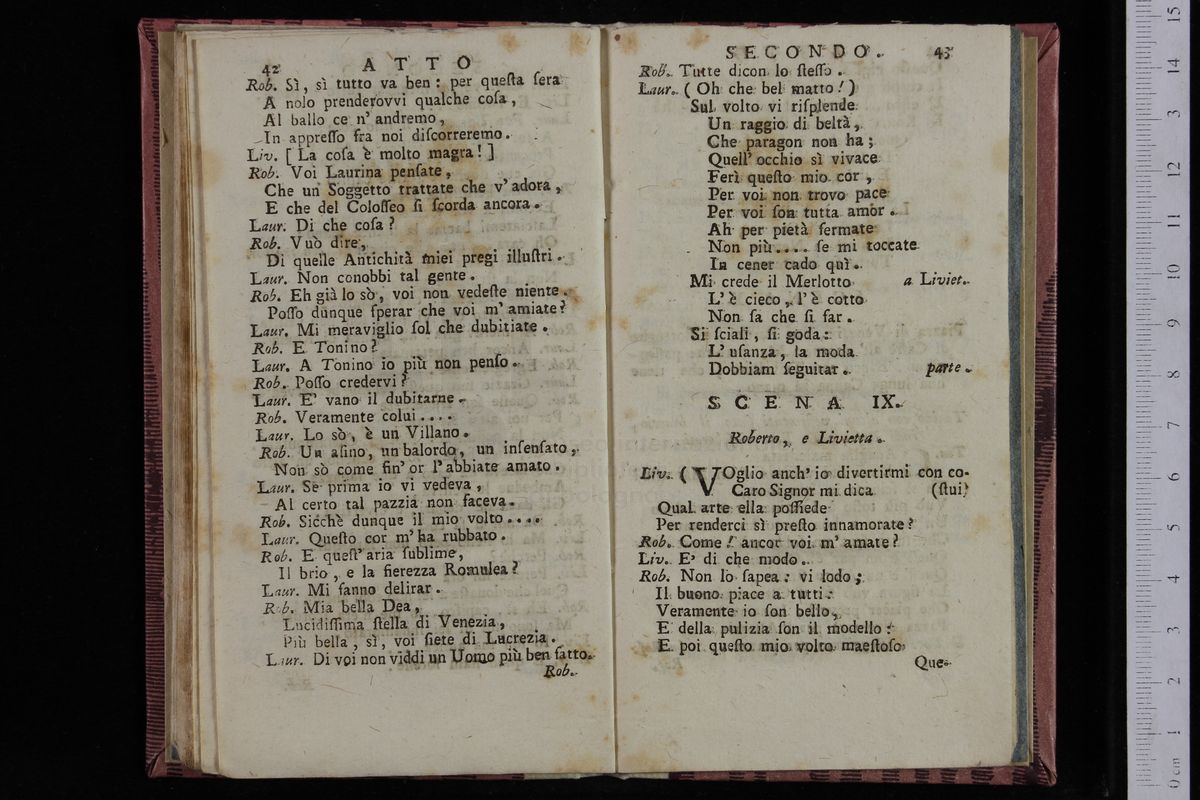 42 ATTO
Rob. Sì, sì tutto va ben: per queſta ſera
A nolo prenderovvi qualche coſa,
Al ballo ce n' andremo,
In appreſſo fra noi diſcorreremo.
Liv. [ La coſa è molto magra! ]
Rob. Voi Laurina penſate,
Che un Soggetto trattate che v' adora,
E che del Coloſſeo ſi ſcorda ancora.
Laur. Di che coſa?
Rob. Vuò dire,
Di quelle Antichità miei pregi illuſtri.
Laur. Non conobbi tal gente.
Rob. Eh già lo sò, voi non vedeſte niente.
Poſſo dunque ſperar che voi m' amiate?
Laur. Mi meraviglio ſol che dubitiate.
Rob. E Tonino?
Laur. A Tonino io più non penſo.
Rob. Poſſo credervi?
Laur. E' vano il dubitarne.
Rob. Veramente colui....
Laur. Lo sò, è un Villano.
Rob. Un aſino, un balordo, un inſenſato,
Non sò come fin' or l' abbiate amato.
Laur. Se prima io vi vedeva,
Al certo tal pazzia non faceva.
Rob. Sicchè dunque il mio volto....
Laur. Queſto cor m' ha rubbato.
Rob. E queſt' aria ſublime,
Il brio, e la fierezza Romulea?
Laur. Mi fanno delirar.
Rob. Mia bella Dea,
Lucidiſſima ſtella di Venezia,
Più bella, sì, voi ſiete di Lucrezia.
Laur. Di voi non viddi un Uomo più ben fatto.
Rob.
SECONDO. 43
Rob. Tutte dicon lo ſteſſo.
Laur. ( Oh che bel matto! )
Sul volto vi riſplende
Un raggio di beltà,
Che paragon non ha;
Quell' occhio sì vivace
Ferì queſto mio cor,
Per voi non trovo pace
Per voi ſon tutta amor.
Ah per pietà fermate
Non più.... ſe mi toccate
In cener cado quì.
Mi crede il Merlotto a Liviet.
L' è cieco, l' è cotto
Non ſa che ſi far.
Si ſciali, ſi goda:
L' uſanza, la moda
Dobbiam ſeguitar. parte.
SCENA IX.
Roberto, e Livietta.
Liv. ( VOglio anch' io divertirmi con co-
Caro Signor mi dica (ſtui)
Qual arte ella poſſiede
Per renderci sì preſto innamorate?
Rob. Come! ancor voi m' amate?
Liv. E' di che modo.
Rob. Non lo ſapea: vi lodo;
Il buono piace a tutti:
Veramente io ſon bello,
E della pulizia ſon il modello:
E poi queſto mio volto maeſtoſo
Que-